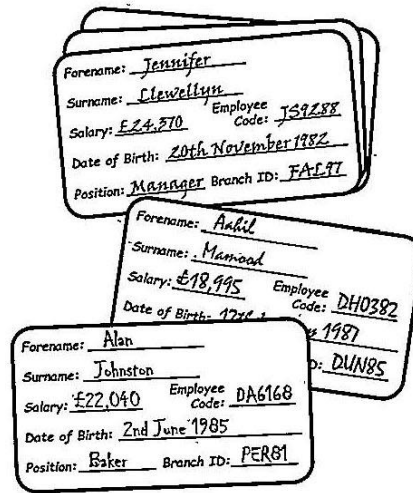 Forename: Jennifer
Surname: Llewellyn
Salary: £24,370 Employee Code: JS9288
Date of Birth: 20th November 1982
Position: Manager Branch ID: FAL97
Forename: Aahil
Surname: Mamood
Salary: £18,995 Employee Code: DH0382
Date of Birth: 1987
DUN85
Forename: Alan
Surname: Johnston
Salary: £22,040 Employee Code: DA6168
Date of Birth: 2nd June 1985
Position: Baker Branch ID: PER81